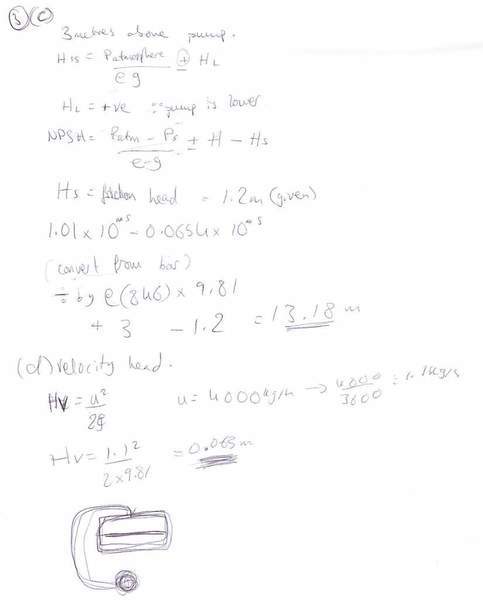 3 (c)
3 metres above pump.
His = Patmosphere / ρg ± HL
HL = +ve ∵ pump is lower
NPSH = Patm - Ps / ρ-g ± H - Hs
Hs = friction head = 1.2m (given)
1.01 x 10^5 - 0.0654 x 10^5
(convert from bar)
÷ by ρ(846) x 9.81
+ 3 - 1.2 = 13.18 m
(d) velocity head.
Hv = u² / 2g u = 4000 kg/h → 4000 / 3600 = 1.1 kg/s
Hv = 1.1² / 2 x 9.81 = 0.065 m